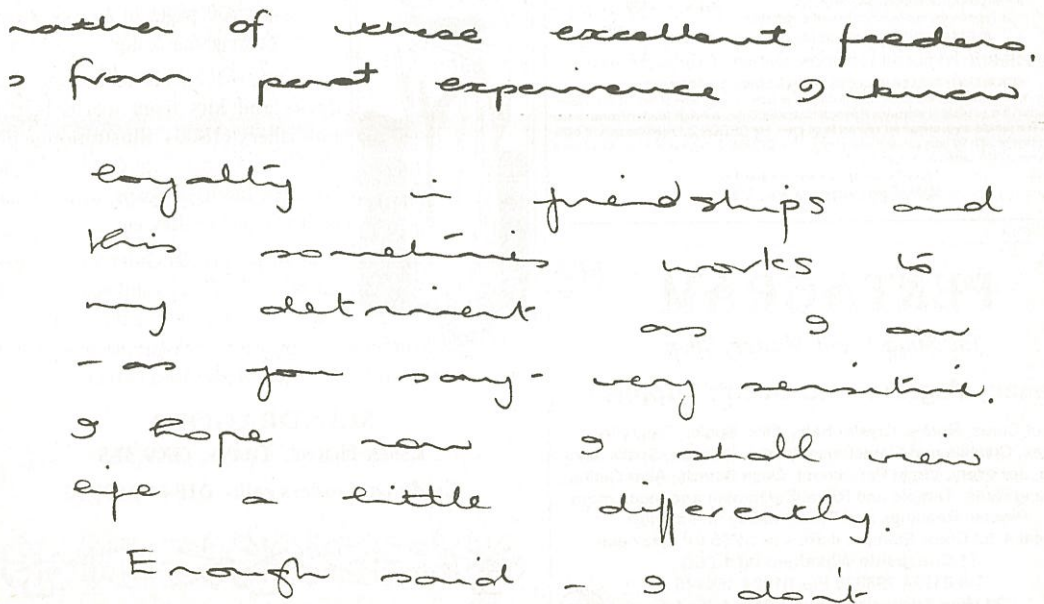 nother of these excellent feeders.
s from past experience I know
loyalty in friendships and
this sometimes works to
my detriment as I am
- as you say - very sensitive.
I hope now I shall view
life a little differently.
Enough said - I dont